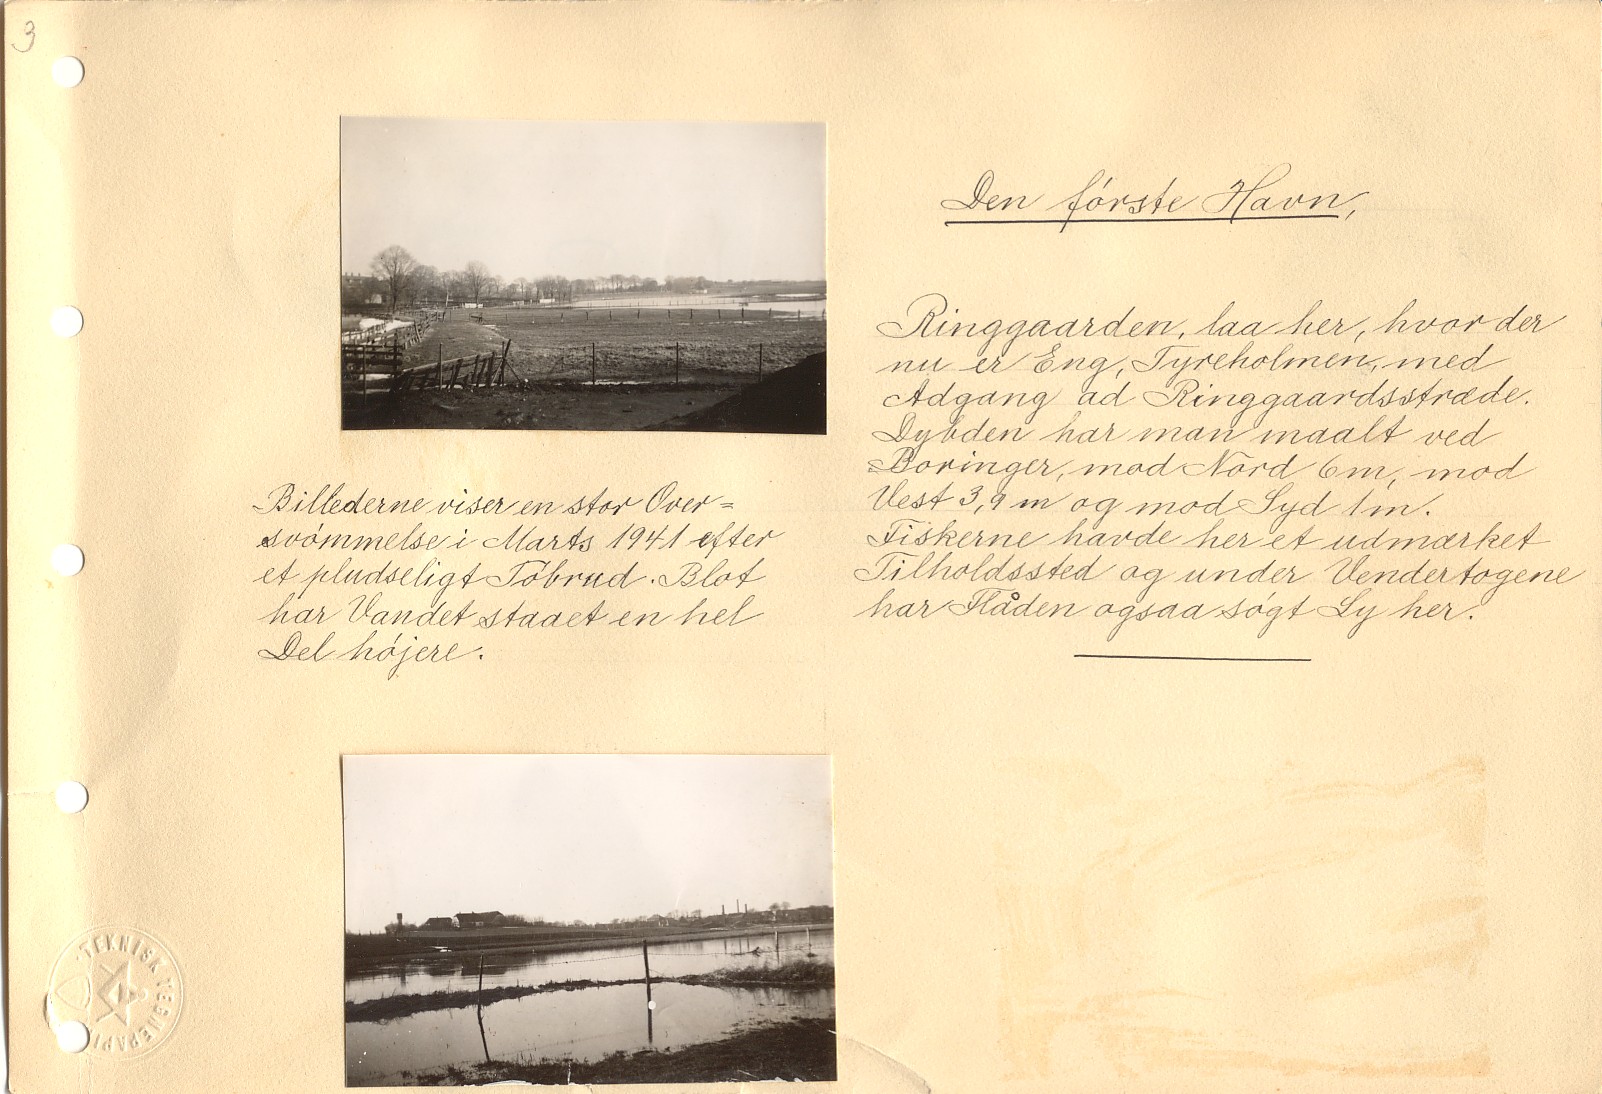 3
Den förste Havn,
Ringgaarden, laa her, hvor der
nu er Eng, Tyreholmen, med
Adgang ad Ringgaardsstræde.
Dybden har man maalt ved
Boringer, mod Nord 6m, mod
Vest 3,9 m og mod Syd 1m.
Fiskerne havde her et udmærket
Tilholdssted og under Vendertogene
har Flåden ogsaa søgt Ly her.
Billederne viser en stor Over=
svømmelse i Marts 1941 efter
et pludseligt Töbrud. Blot
har Vandet staaet en hel
Del højere.
TEKNISK TEGNEPAPI